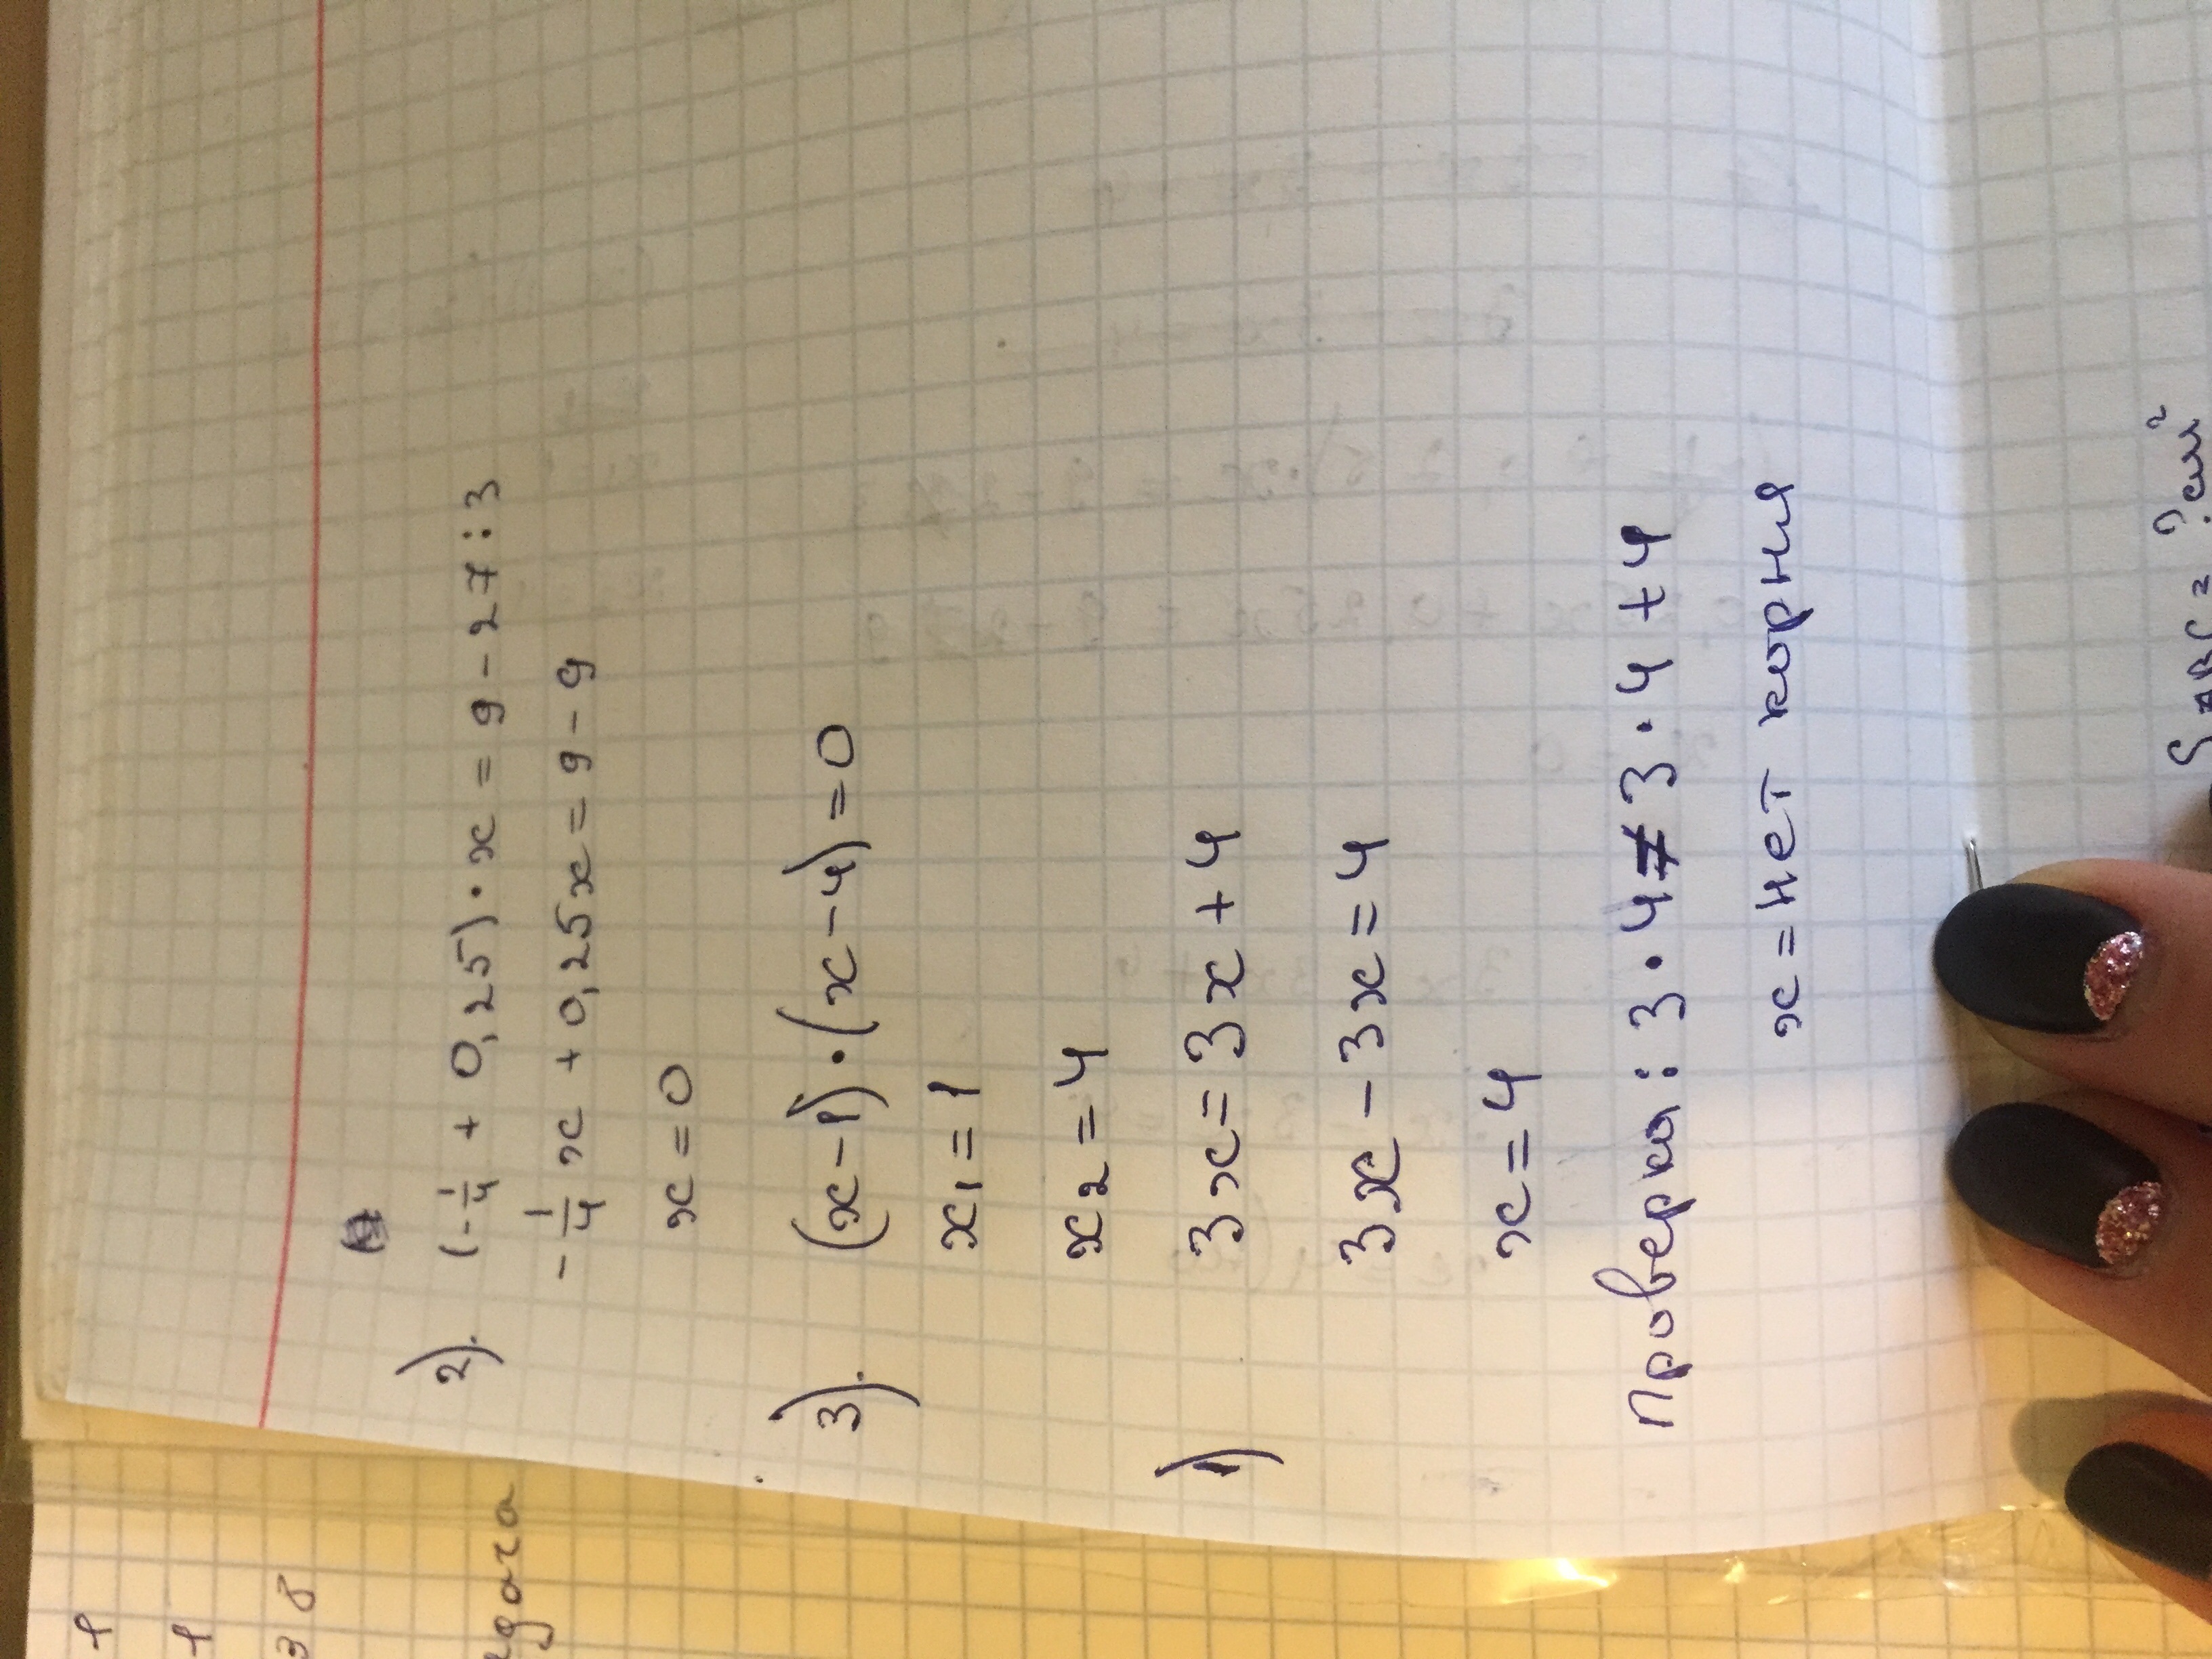 2). (-1/4 + 0,25)·x = 9 - 27:3
-1/4 x + 0,25x = 9 - 9
x = 0
3). (x-1)·(x-4)=0
x₁ = 1
x₂ = 4
1) 3x = 3x + 4
3x - 3x = 4
x = 4
Проверка: 3·4 ≠ 3·4+4
x = нет корня
38
?см²